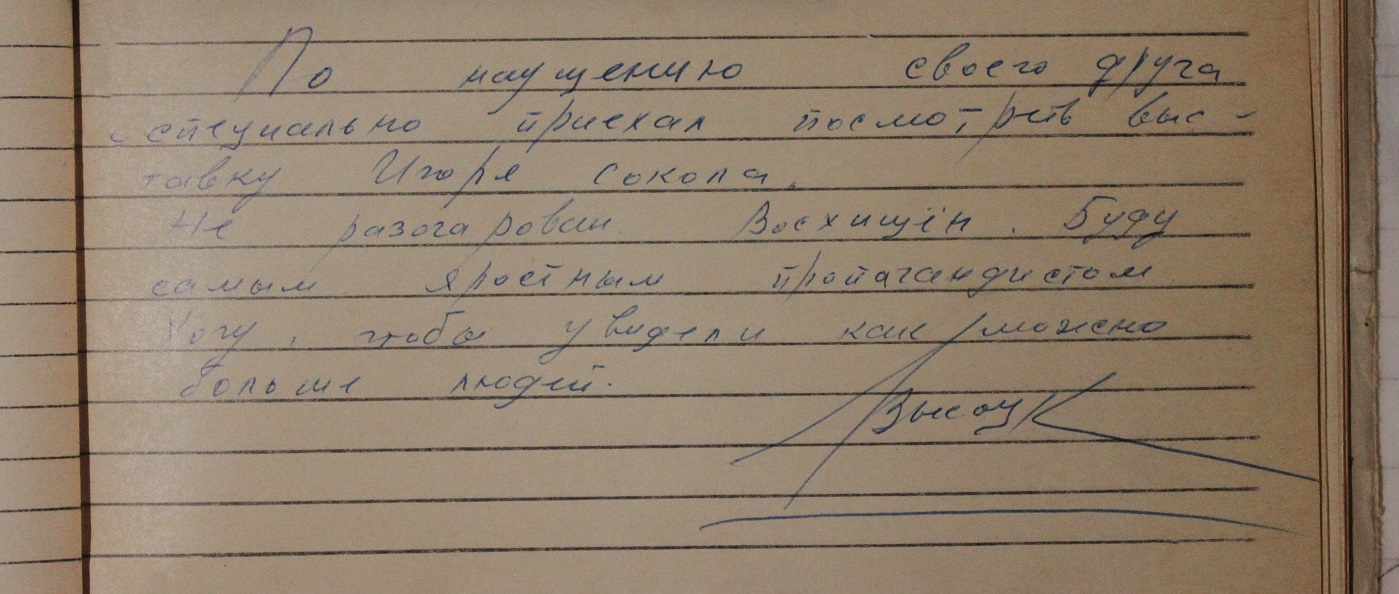 По наущению своего друга
специально приехал посмотреть выс-
тавку Игоря Сокола.
Не разочарован. Восхищён. Буду
самым яростным пропагандистом
Хочу, чтобы увидели как можно
больше людей.
Высоц